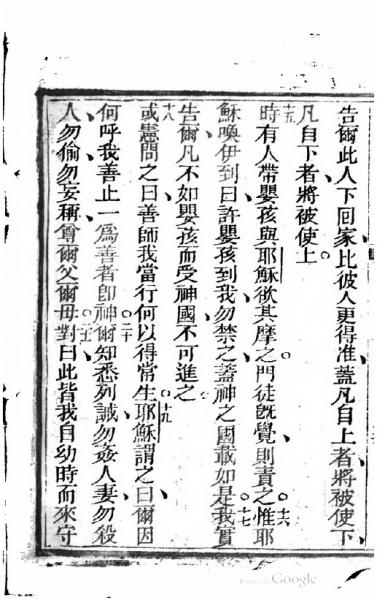 告爾此人下回家比彼人更得准蓋凡自上者將被使下
凡自下者將被使上
十五時有人帶嬰孩與耶穌欲其摩之門徒旣覺則責之十六惟耶
穌喚伊到曰許嬰孩到我勿禁之蓋神之國載如是十七我實
告爾凡不如嬰孩而受神國不可進之
十八或憲問之曰善師我當行何以得常生十九耶穌謂之曰爾因
何呼我善止一爲善者卽神二十爾知悉列誡勿姦人妻勿殺
人勿偷勿妄稱尊爾父爾母對曰此皆我自幼時而來守
Google